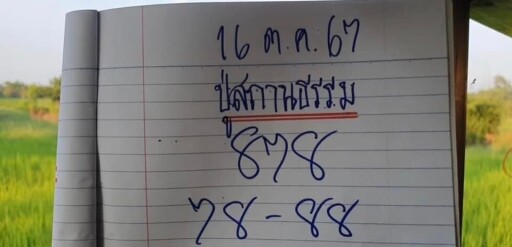 16 ต.ค. 67
ปู่สถานธรรม
878
78-88